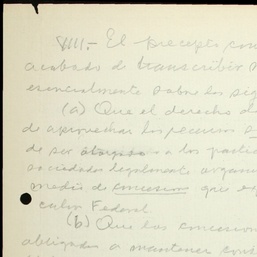 VIII.- El precepto con
acabado de transcribir
esencialmente sobre los sig
(a) Que el derecho d
de aprovechar los recursos
de ser otorgado a los partic
sociedades legalmente organ
medio de concesiones que
cutivo Federal.
(b) Que los concesion
obligados a mantener cont